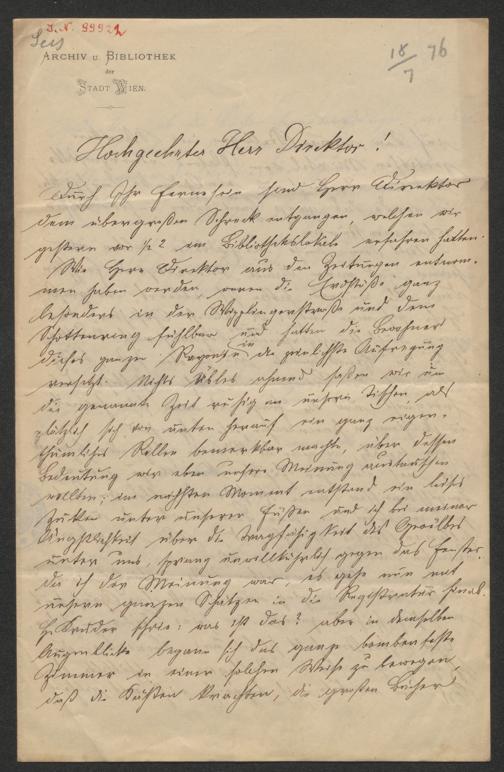 J. N. 99921
ARCHIV U. BIBLIOTHEK
der
STADT WIEN.
18/7 76
Hochgeehrter Herr Direktor!
Durch Ihr Fernesein sind Herr Direktor
dem übergroßen Schreck entgangen, welchen wir
gestern vor ½ 2 im Bibliothekslokale erfahren hatten.
Wie Herr Direktor aus den Zeitungen entnom-
men haben werden, waren die Erdstöße ganz
besonders in der Wipplingerstraße und dem
Schottenring fühlbar und hatten die Bewohner
dieses ganzen Rayons in die peinlichste Aufregung
versetzt. Nichts Übles ahnend saßen wir um
die genannte Zeit ruhig an unsern Tischen, als
plötzlich sich von unten herauf ein ganz eigen-
thümliches Rollen bemerkbar machte, über dessen
Bedeutung wir eben unsere Meinung austauschen
wollten; im nächsten Moment entstand ein leises
Zucken unter unseren Füßen und ich bei meiner
Ängstlichkeit über die Tragfähigkeit des Gewölbes
unter uns, sprang unwillkührlich gegen das Fenster,
da ich der Meinung war, es gehe nun mit
unsern ganzen Schätzen in die Registratur hinab.
H. Kruder schrie: was ist das? aber in demselben
Augenblicke begann sich das ganze bombenfeste
Zimmer in einer solchen Weise zu bewegen,
daß die Kästen krachten, die großen Bücher